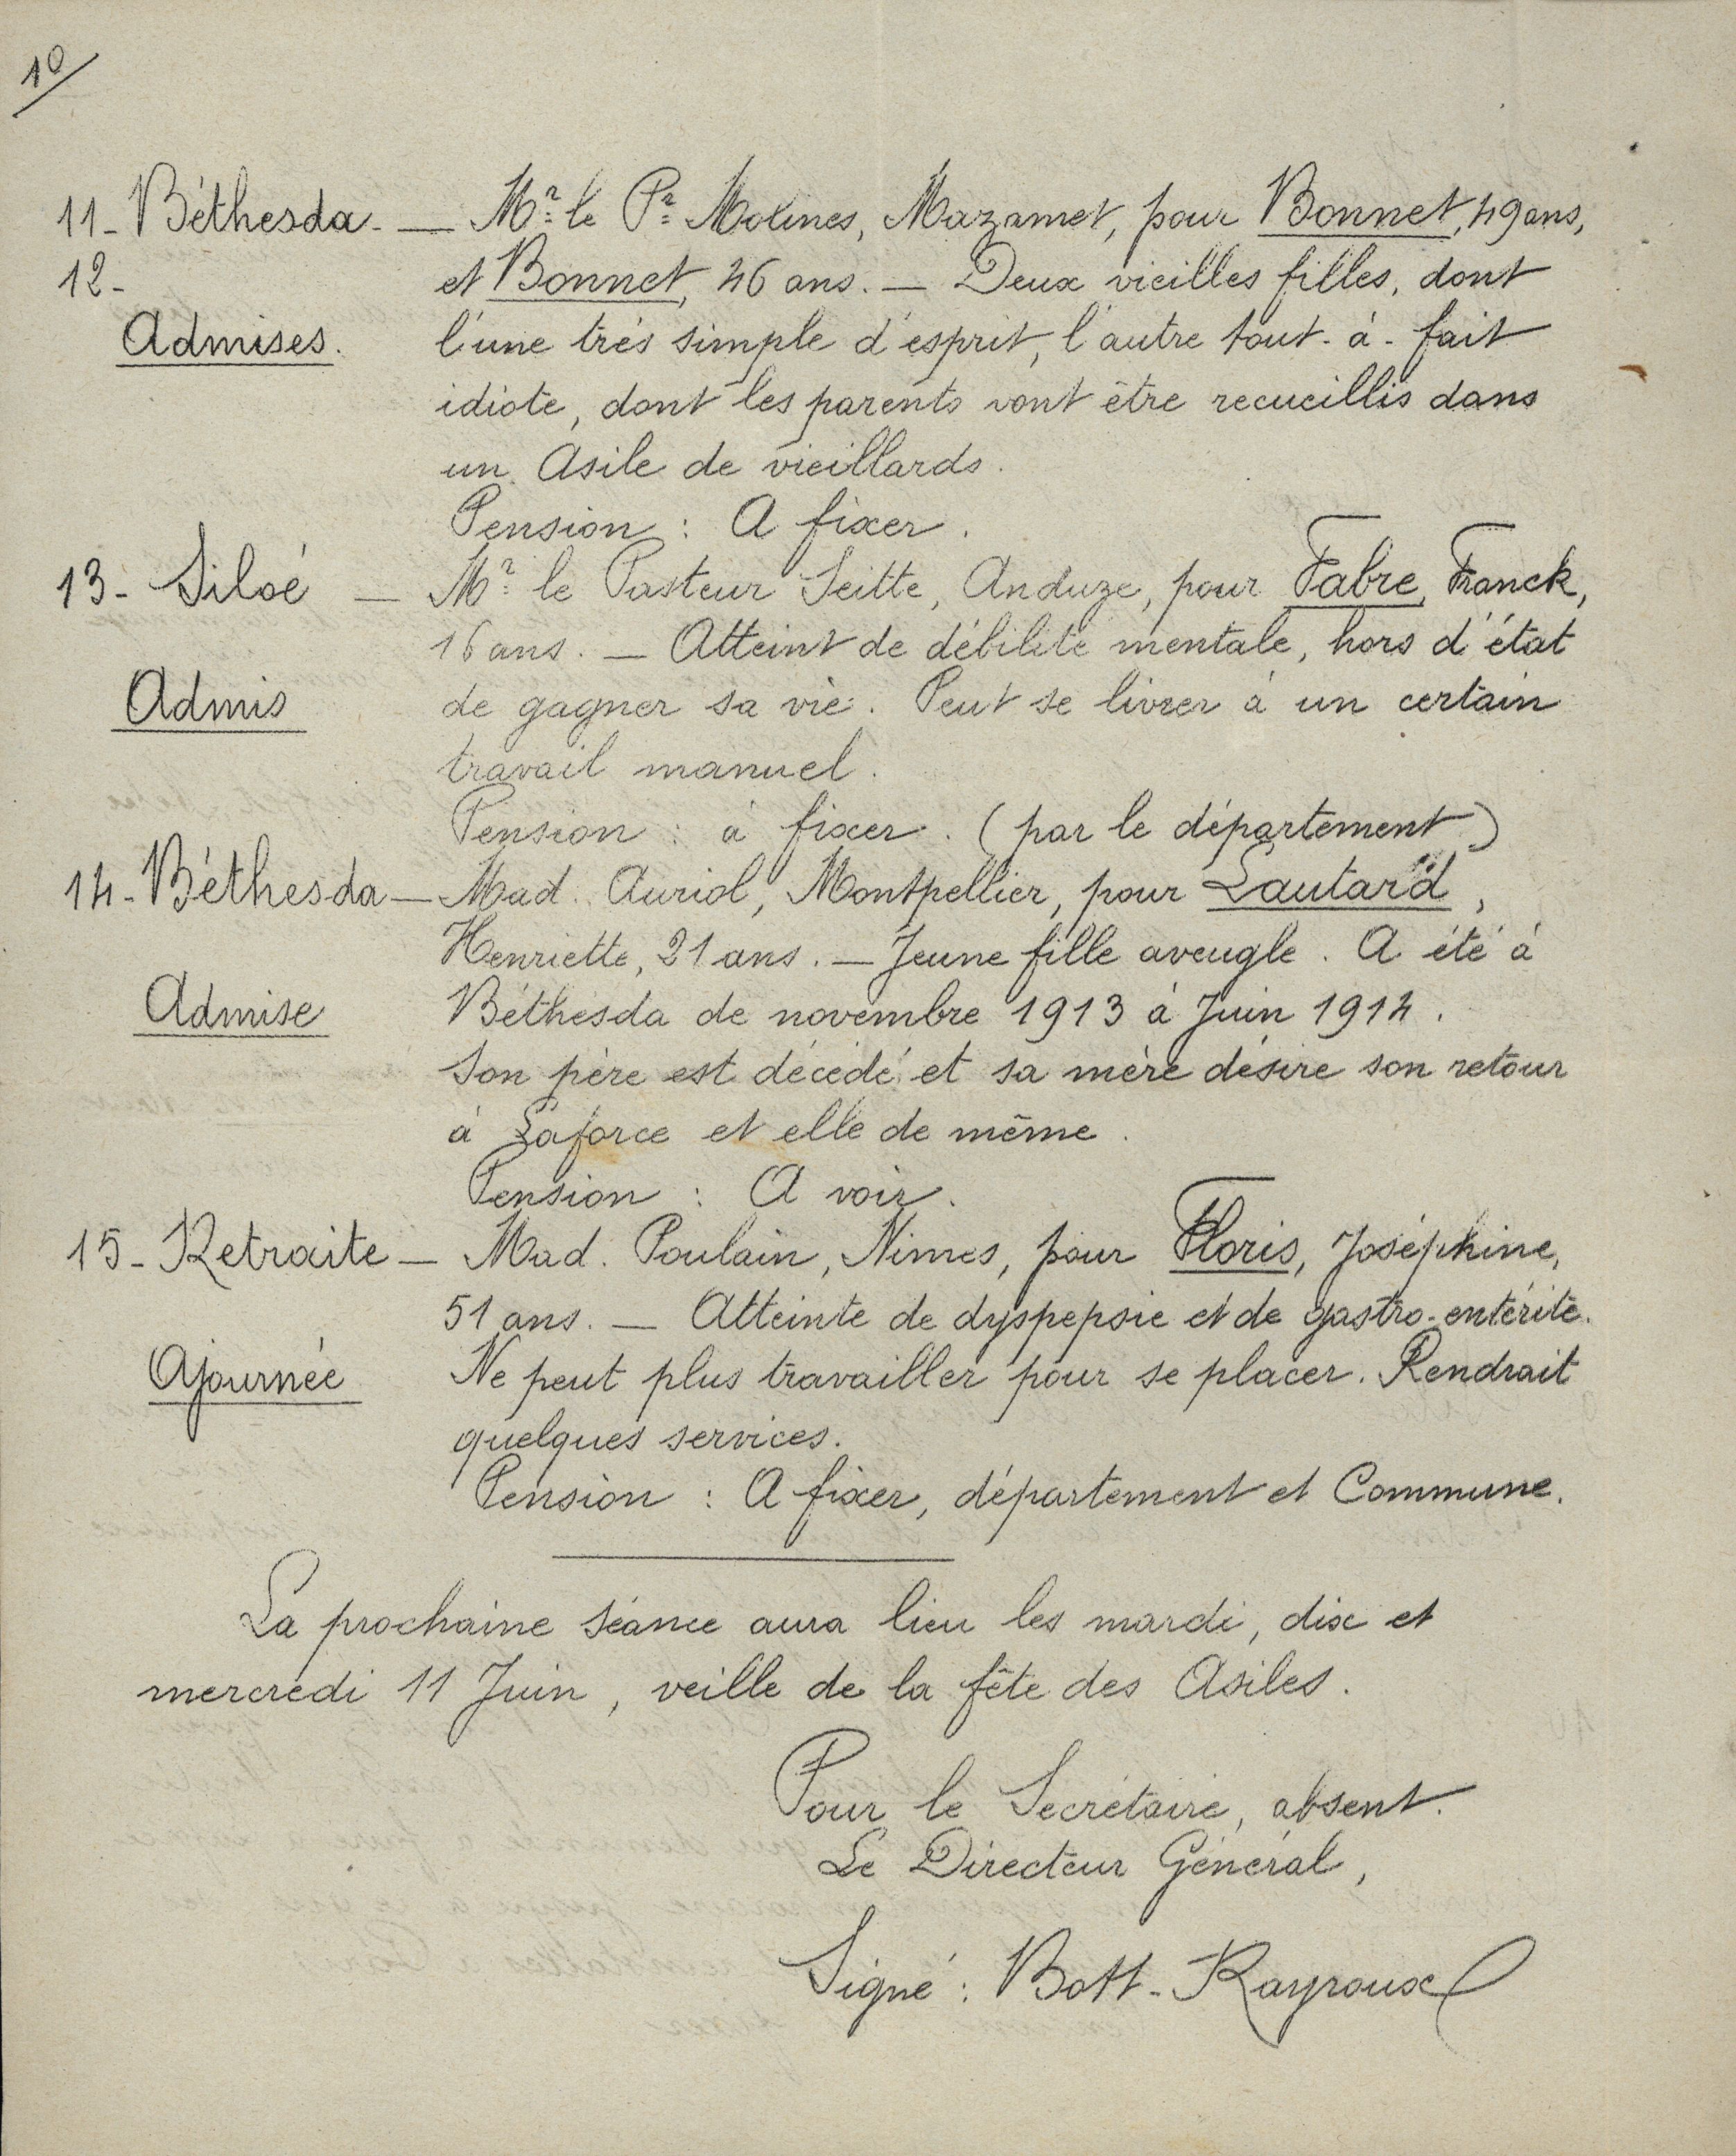 10/
11- Béthesda. — Mr. le Pr. Molines, Mazamet, pour Bonnet, 49 ans,
12- et Bonnet, 46 ans. — Deux vieilles filles, dont
Admises. l'une très simple d'esprit, l'autre tout-à-fait
idiote, dont les parents vont être recueillis dans
un Asile de vieillards.
Pension : A fixer.
13- Siloé — Mr. le Pasteur Seitte, Anduze, pour Fabre, Franck,
16 ans. — Atteint de débilité mentale, hors d'état
Admis de gagner sa vie. Peut se livrer à un certain
travail manuel.
Pension : à fixer. (par le département)
14- Béthesda — Mad. Auriol, Montpellier, pour Lautard,
Henriette, 21 ans. — Jeune fille aveugle. A été à
Admise Béthesda de novembre 1913 à Juin 1914.
Son père est décédé et sa mère désire son retour
à Laforce et elle de même.
Pension : A voir.
15- Retraite — Mad. Poulain, Nimes, pour Floris, Joséphine,
51 ans. — Atteinte de dyspepsie et de gastro-entérite.
Ajournée Ne peut plus travailler pour se placer. Rendrait
quelques services.
Pension : A fixer, département et Commune.
La prochaine séance aura lieu les mardi, dix et
mercredi 11 Juin, veille de la fête des Asiles.
Pour le Secrétaire, absent.
Le Directeur Général,
Signé : Bott-Rayroux